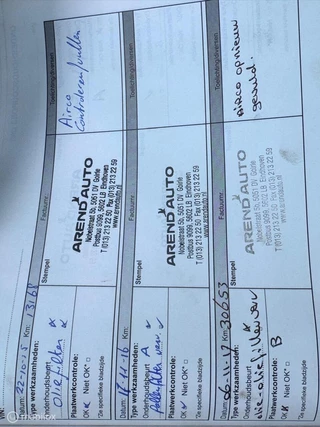 Datum: 22-10-15 Km:
Type werkzaamheden:
Onderhoudsbeurt
oliefilter
Plaatwerkcontrole:
OK Niet OK*
*Zie specifieke bladzijde
Stempel
AREND AUTO
Nobelstraat 5b, 5051 DV Goirle
Postbus 9099, 5602 LB Eindhoven
T (013) 213 22 50 Fax (013) 213 22 59
www.arendauto.nl
Factuurnr.
Toekomstigadviezen
Airco
Controleren/vullen
Datum: Km:
Type werkzaamheden:
Onderhoudsbeurt A
Plaatwerkcontrole:
OK Niet OK*
*Zie specifieke bladzijde
Stempel
AREND AUTO
Nobelstraat 5b, 5051 DV Goirle
Postbus 9099, 5602 LB Eindhoven
T (013) 213 22 50 Fax (013) 213 22 59
www.arendauto.nl
Factuurnr.
Datum: 06-11-17 Km: 30653
Type werkzaamheden:
Onderhoudsbeurt B
olie-oliefilter
Plaatwerkcontrole:
OK Niet OK*
*Zie specifieke bladzijde
Stempel
AREND AUTO
Nobelstraat 5b, 5051 DV Goirle
Postbus 9099, 5602 LB Eindhoven
T (013) 213 22 50 Fax (013) 213 22 59
www.arendauto.nl
Factuurnr.
airco opnieuw
gevuld.